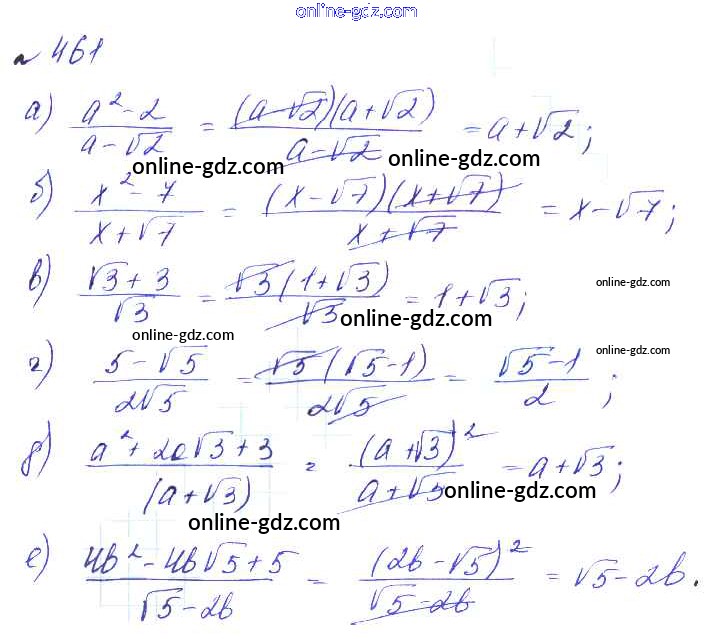 online-gdz.com
№ 461
а) (a² - 2)/(a - √2) = ((a - √2)(a + √2))/(a - √2) = a + √2;
online-gdz.com online-gdz.com
б) (x² - 7)/(x + √7) = ((x - √7)(x + √7))/(x + √7) = x - √7;
в) (√3 + 3)/√3 = (√3(1 + √3))/√3 = 1 + √3;
online-gdz.com
online-gdz.com
online-gdz.com
online-gdz.com
г) (5 - √5)/(2√5) = (√5(√5 - 1))/(2√5) = (√5 - 1)/2;
д) (a² + 2a√3 + 3)/(a + √3) = (a + √3)²/(a + √3) = a + √3;
online-gdz.com
online-gdz.com
е) (4b² - 4b√5 + 5)/(√5 - 2b) = (2b - √5)²/(√5 - 2b) = √5 - 2b.